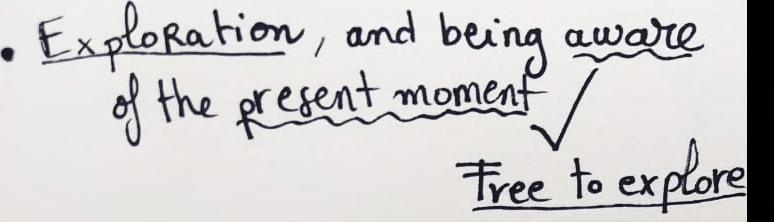 • Exploration, and being aware
of the present moment ✓
Free to explore